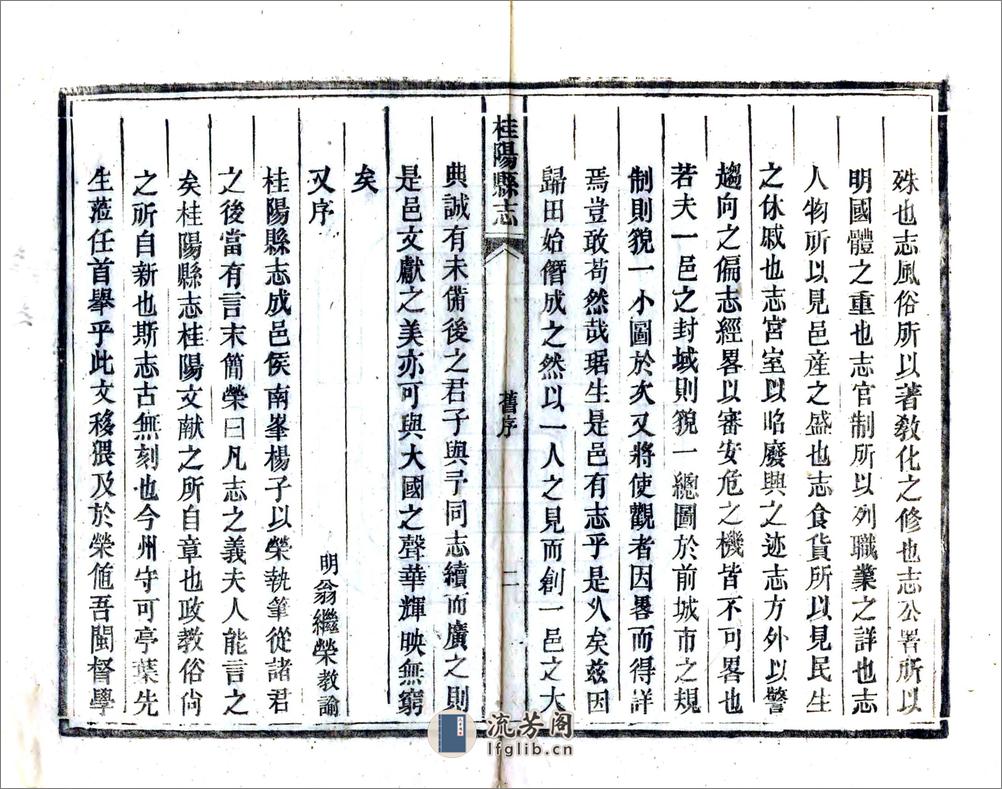 殊也志風俗所以著教化之修也志公署所以
明國體之重也志官制所以列職業之詳也志
人物所以見邑產之盛也志食貨所以見民生
之休戚也志宮室以昭廢興之迹志方外以警
趨向之偏志經畧以審安危之機皆不可畧也
若夫一邑之封域則貌一總圖於前城市之規
制則貌一小圖於次又將使觀者因畧而得詳
焉豈敢苟然哉琚生是邑有志乎是久矣茲因
歸田始僭成之然以一人之見而創一邑之大
桂陽縣志
舊序
二
典誠有未備後之君子與予同志續而廣之則
是邑文獻之美亦可與大國之聲華輝映無窮
矣
又序
明翁繼榮教諭
桂陽縣志成邑侯南峯楊子以榮執筆從諸君
之後當有言末簡榮曰凡志之義夫人能言之
矣桂陽縣志桂陽文獻之所自章也政教俗尚
之所自新也斯志古無刻也今州守可亭葉先
生蒞任首舉乎此文移猥及於榮値吾閩督學
流芳阁
lfglib.cn